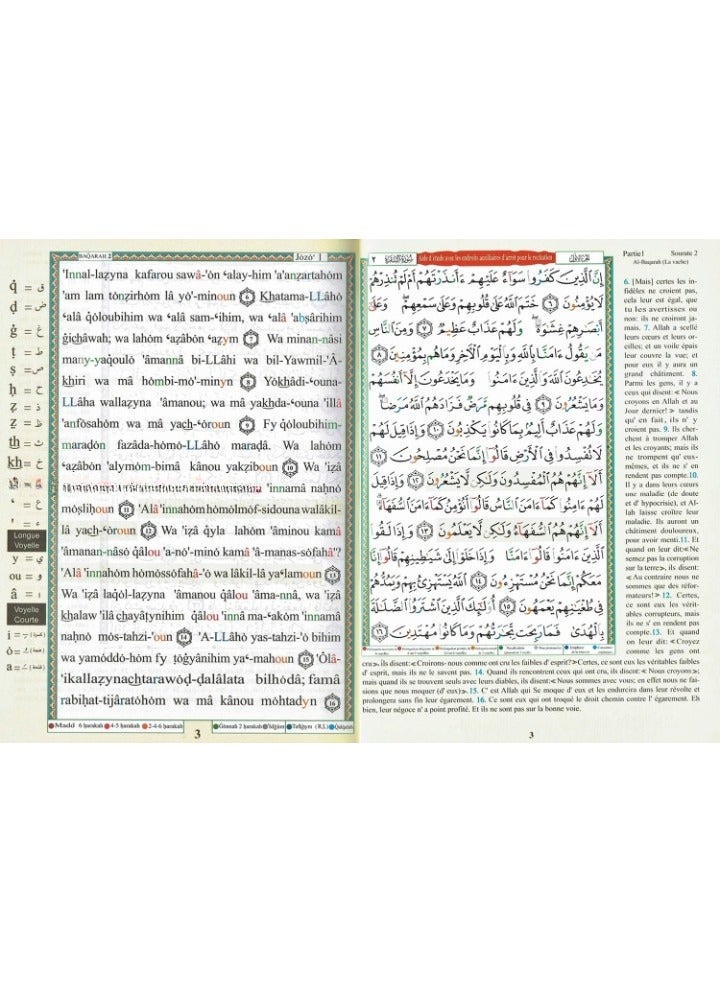 BAQARAH 2
Jòzò' 1
'Innal-laẓyna kafarou sawâ-'òn ‛alay-him 'a'anẓartahòm
'am lam tònẓirhòm lâ yò'-minoun 6 Khatama-LLâhò
‛alâ qòloubihim wa ‛alâ sam-‛ihim, wa ‛alâ 'abṣârihim
ġichâwah; wa lahòm ‛aẓâbòn ‛aẓym 7 Wa minan-nâsi
many-yaqoulò 'âmannâ bi-LLâhi wa bil-Yawmil-'Â-
khiri wa mâ hòmbi-mò'-minyn 8 Yòkhâdi-‛ouna-
LLâha wallaẓyna 'âmanou; wa mâ yakhda-‛ouna 'illâ
'anfòsahòm wa mâ yach-‛òroun 9 Fy qòloubihim-
maraḍòn fazâda-hòmò-LLâhò maraḍâ. Wa lahòm
‛aẓâbòn 'alymòm-bimâ kânou yakẓiboun 10 Wa 'iẓâ
'innamâ naḥnò
mòṣliḥoun 11 'Alâ 'innahòm hòmòlmòf-sidouna walâkil-
lâ yach-‛òroun 12 Wa 'iẓâ qyla lahòm 'âminou kamâ
'âmanan-nâsò qâlou 'a-nò'-minò kamâ 'â-manas-sòfahâ'?
'Alâ 'innahòm hòmòssòfahâ-'ò wa lâkil-lâ ya‛lamoun 13
Wa 'iẓâ laqòl-laẓyna 'âmanou qâlou 'âma-nnâ, wa 'iẓâ
khalaw 'ilâ chayâṭynihim qâlou 'innâ ma-‛akòm 'innamâ
naḥnò mòs-tahzi-'oun 14 'A-LLâhò yas-tahzi-'ò bihim
wa yamòddò-hòm fy ṭòġyânihim ya‛-mahoun 15 'Òlâ-
'ikallaẓynachtarawòḍ-ḍalâlata bilhòdâ; famâ
rabiḥat-tijâratòhòm wa mâ kânou mòhtadyn 16
Madd 6 ḥarakah 4-5 ḥarakah 2-4-6 ḥarakah Ġonnah 2 ḥarakah 'Idġâm Tafkhym (R.L) Qalqalah
3
q̇ = ق
ḍ = ض
ġ = غ
ṭ = ط
ṣ = ص
ḥ = ح
ẓ = ذ
th = ث
kh = خ
‛ = ع
' = ء
Longue
Voyelle
y = ي
ou = و
â = ا
Voyelle
Courte
i =
ò =
a =
٢
سورة البقرة
Aide d'étude avec les endroits auxiliaires d'arrêt pour le recitation
الجزء الأول
إِنَّ الَّذِينَ كَفَرُوا سَوَاءٌ عَلَيْهِمْ ءَأَنذَرْتَهُمْ أَمْ لَمْ تُنذِرْهُمْ
لَا يُؤْمِنُونَ ٦ خَتَمَ اللَّهُ عَلَىٰ قُلُوبِهِمْ وَعَلَىٰ سَمْعِهِمْ وَعَلَىٰ
أَبْصَٰرِهِمْ غِشَٰوَةٌ وَلَهُمْ عَذَابٌ عَظِيمٌ ٧ وَمِنَ النَّاسِ
مَن يَقُولُ ءَامَنَّا بِاللَّهِ وَبِالْيَوْمِ الْآخِرِ وَمَا هُم بِمُؤْمِنِينَ ٨
يُخَٰدِعُونَ اللَّهَ وَالَّذِينَ ءَامَنُوا وَمَا يَخْدَعُونَ إِلَّا أَنفُسَهُمْ
وَمَا يَشْعُرُونَ ٩ فِي قُلُوبِهِم مَّرَضٌ فَزَادَهُمُ اللَّهُ مَرَضًا
وَلَهُمْ عَذَابٌ أَلِيمٌ بِمَا كَانُوا يَكْذِبُونَ ١٠ وَإِذَا قِيلَ لَهُمْ
لَا تُفْسِدُوا فِي الْأَرْضِ قَالُوا إِنَّمَا نَحْنُ مُصْلِحُونَ ١١
أَلَا إِنَّهُمْ هُمُ الْمُفْسِدُونَ وَلَٰكِن لَّا يَشْعُرُونَ ١٢ وَإِذَا قِيلَ
لَهُمْ ءَامِنُوا كَمَا ءَامَنَ النَّاسُ قَالُوا أَنُؤْمِنُ كَمَا ءَامَنَ السُّفَهَاءُ
أَلَا إِنَّهُمْ هُمُ السُّفَهَاءُ وَلَٰكِن لَّا يَعْلَمُونَ ١٣ وَإِذَا لَقُوا
الَّذِينَ ءَامَنُوا قَالُوا ءَامَنَّا وَإِذَا خَلَوْا إِلَىٰ شَيَٰطِينِهِمْ قَالُوا إِنَّا
مَعَكُمْ إِنَّمَا نَحْنُ مُسْتَهْزِءُونَ ١٤ اللَّهُ يَسْتَهْزِئُ بِهِمْ وَيَمُدُّهُمْ
فِي طُغْيَٰنِهِمْ يَعْمَهُونَ ١٥ أُولَٰئِكَ الَّذِينَ اشْتَرَوُا الضَّلَٰلَةَ
بِالْهُدَىٰ فَمَا رَبِحَت تِّجَٰرَتُهُمْ وَمَا كَانُوا مُهْتَدِينَ ١٦
Partie 1
Sourate 2
Al-Baqarah (La vache)
6. [Mais] certes les in-
fidèles ne croient pas,
cela leur est égal, que
tu les avertisses ou
non: ils ne croiront ja-
mais. 7. Allah a scellé
leurs cœurs et leurs or-
eilles; et un voile épais
leur couvre la vue; et
pour eux il y aura un
grand châtiment. 8.
Parmi les gens, il y a
ceux qui disent:≪ Nous
croyons en Allah et au
Jour dernier! ≫ tandis
qu' en fait, ils n' y
croient pas. 9. Ils cher-
chent à tromper Allah
et les croyants; mais ils
ne trompent qu' eux-
mêmes, et ils ne s' en
rendent pas compte.10.
Il y a dans leurs cœurs
une maladie (de doute
et d' hypocrisie), et Al-
lah laisse croître leur
maladie. Ils auront un
châtiment douloureux,
pour avoir menti.11. Et
quand on leur dit:≪Ne
semez pas la corruption
sur la terre≫, ils disent:
≪Au contraire nous ne
sommes que des réfor-
mateurs!≫ 12. Certes,
ce sont eux les vérit-
ables corrupteurs, mais
ils ne s' en rendent
pas compte.13. Et quand
on leur dit: ≪Croyez
comme les gens ont
cru≫, ils disent:≪ Croirons- nous comme ont cru les faibles d' esprit?≫Certes, ce sont eux les véritables faibles
d' esprit, mais ils ne le savent pas. 14. Quand ils rencontrent ceux qui ont cru, ils disent:≪ Nous croyons≫;
mais quand ils se trouvent seuls avec leurs diables, ils disent:≪ Nous sommes avec vous; en effet nous ne fai-
sions que nous moquer (d' eux)≫. 15. C' est Allah qui Se moque d' eux et les endurcira dans leur révolte et
prolongera sans fin leur égarement. 16. Ce sont eux qui ont troqué le droit chemin contre l' égarement. Eh
bien, leur négoce n' a point profité. Et ils ne sont pas sur la bonne voie.
3